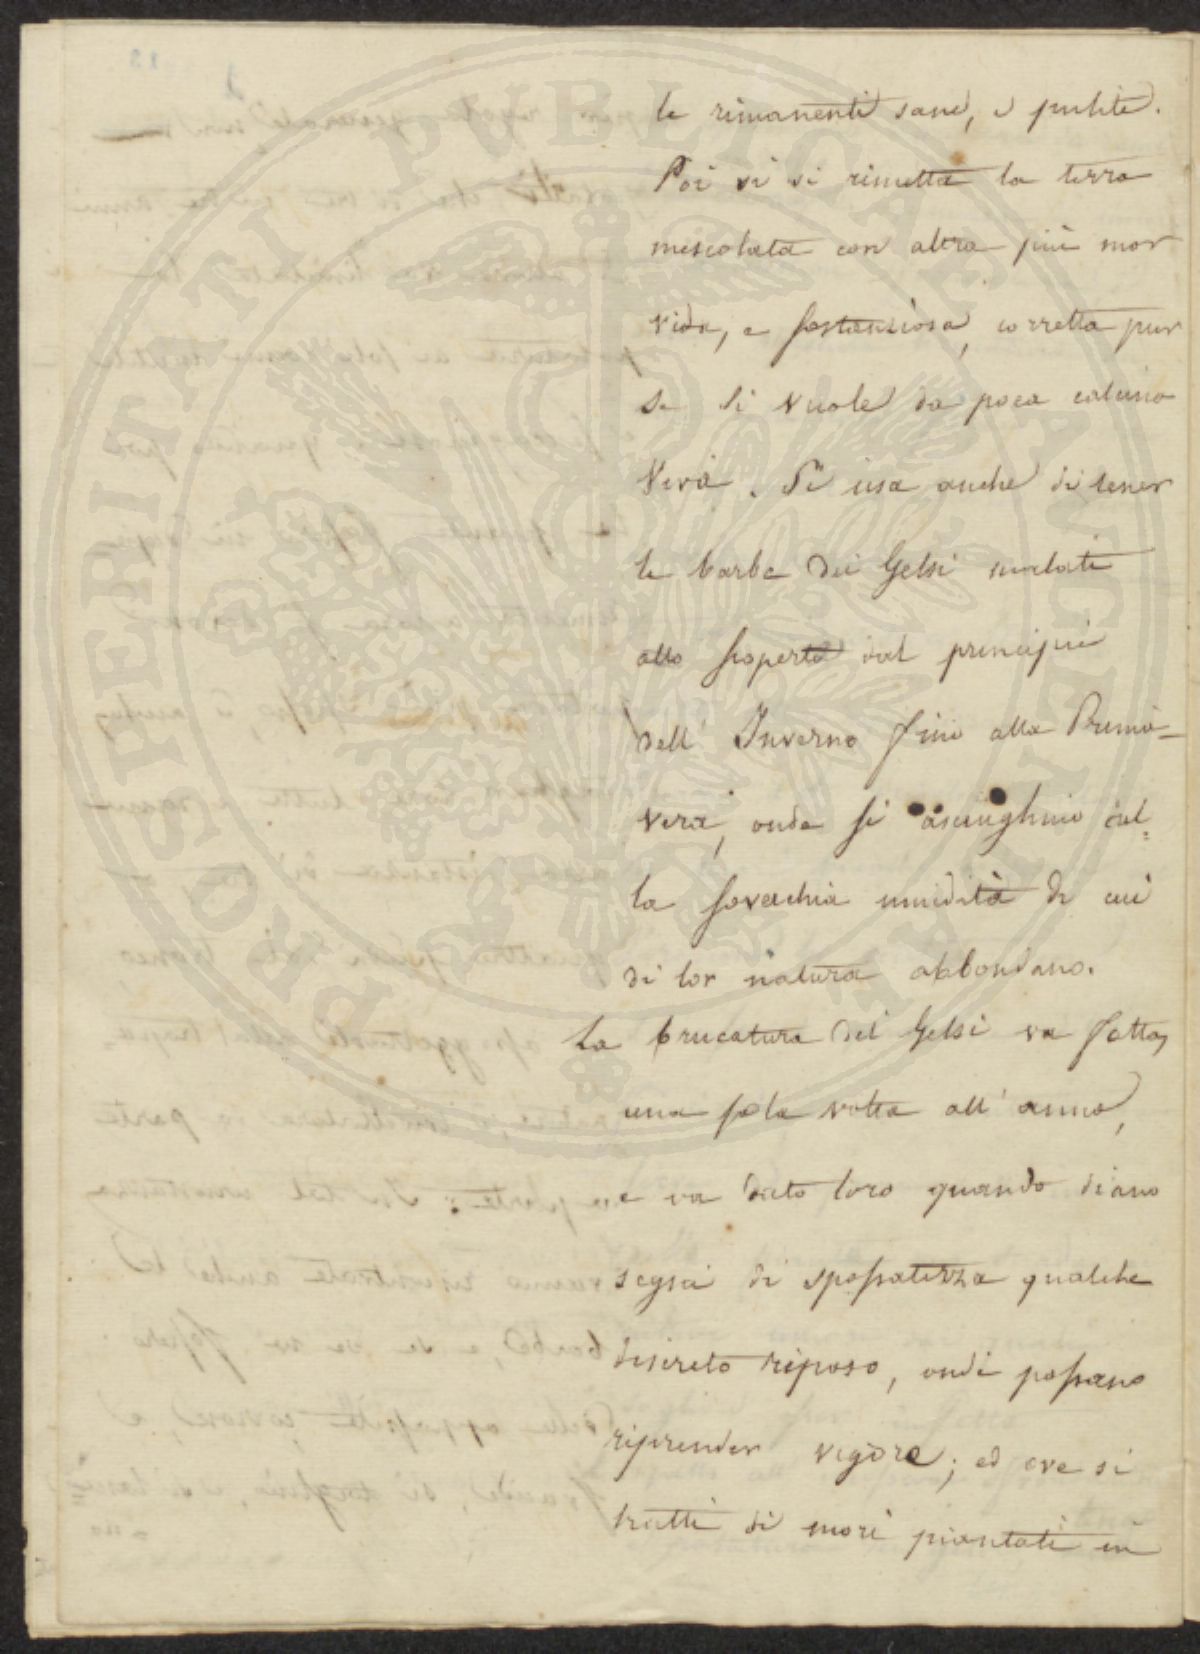 le rimanenti sane, e pulite.
Poi vi si rimetta la terra
mescolata con altra più mor
vida, e sostanziosa, corretta pur
se si vuole da poca calcina
viva. Si usa anche di tener
le barbe dei Gelsi malati
allo scoperto dal principio
dell' Inverno fino alla Prima-
vera, onde si asciughino dal=
la soverchia umidità di cui
di lor natura abbondano.
La brucatura dei Gelsi va fatta
una sola volta all' anno,
e va dato loro quando diano
segni di spossatezza qualche
discreto riposo, onde possano
riprender vigore; ed ove si
tratti di mori piantati in
PROSPERITATI PUBLICAE AUGENDAE